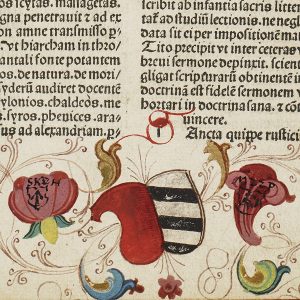 os scytas. maſſagetas.
gna penetrauit ⁊ ad ex
on amne tranſmiſſo p-
vt hiarcham in thro/
ntali fonte potantem
os. de natura. de mori/
yderū audiret docentē
ylonios. chaldeos. me
s. ſyros. phenices. ara/
ſus ad alexandriam. p/
ſcribit ab infantia ſacris litte
tat ad ſtudiū lectionis. ne negl
ſit ei per impoſitionē ma
Tito precipit vt inter ceteras
breui ſermone depinxit. ſcient
gligat ſcripturarū obtinentē i
doctrinā eſt fidelē ſermonem v
hortari in doctrina ſana. ⁊ co
uincere.
Ancta quippe ruſtici